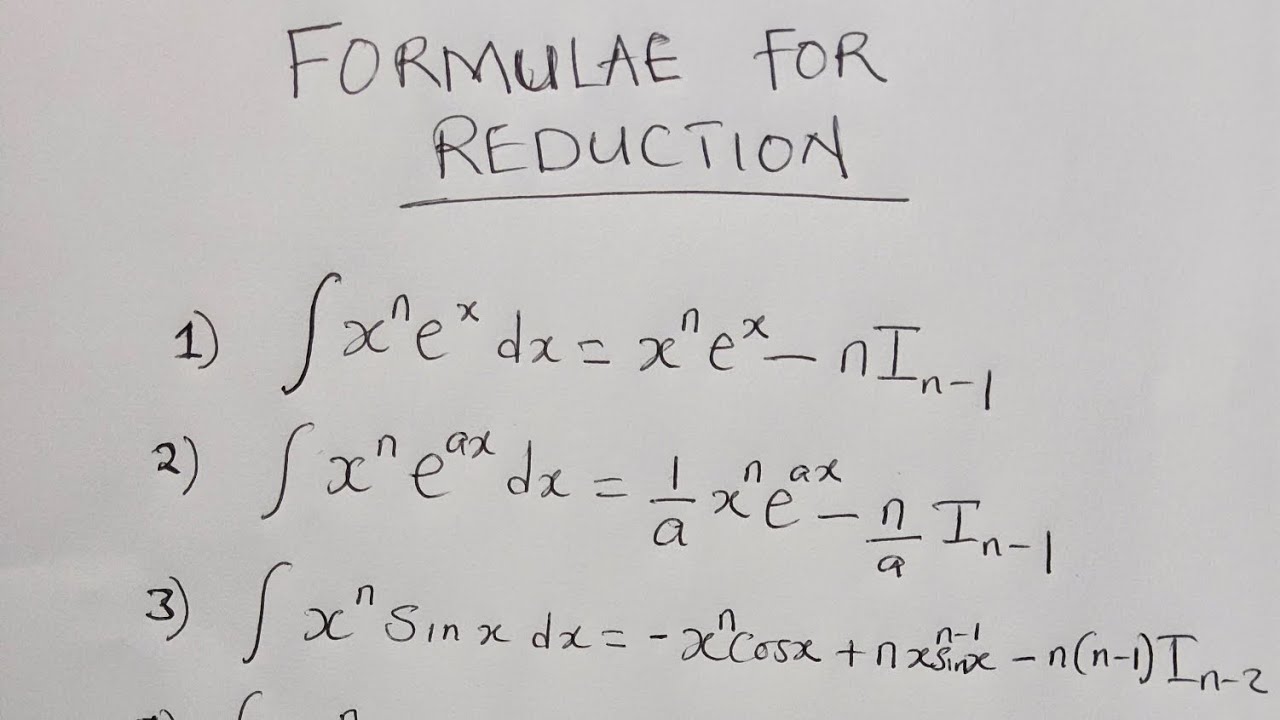 FORMULAE FOR
REDUCTION
1) ∫ xⁿeˣ dx = xⁿeˣ − nIₙ₋₁
2) ∫ xⁿ e^{ax} dx = 1/a xⁿe^{ax} − n/a Iₙ₋₁
3) ∫ xⁿ Sin x dx = -xⁿCosx + nxⁿ⁻¹sinx − n(n−1)Iₙ₋₂